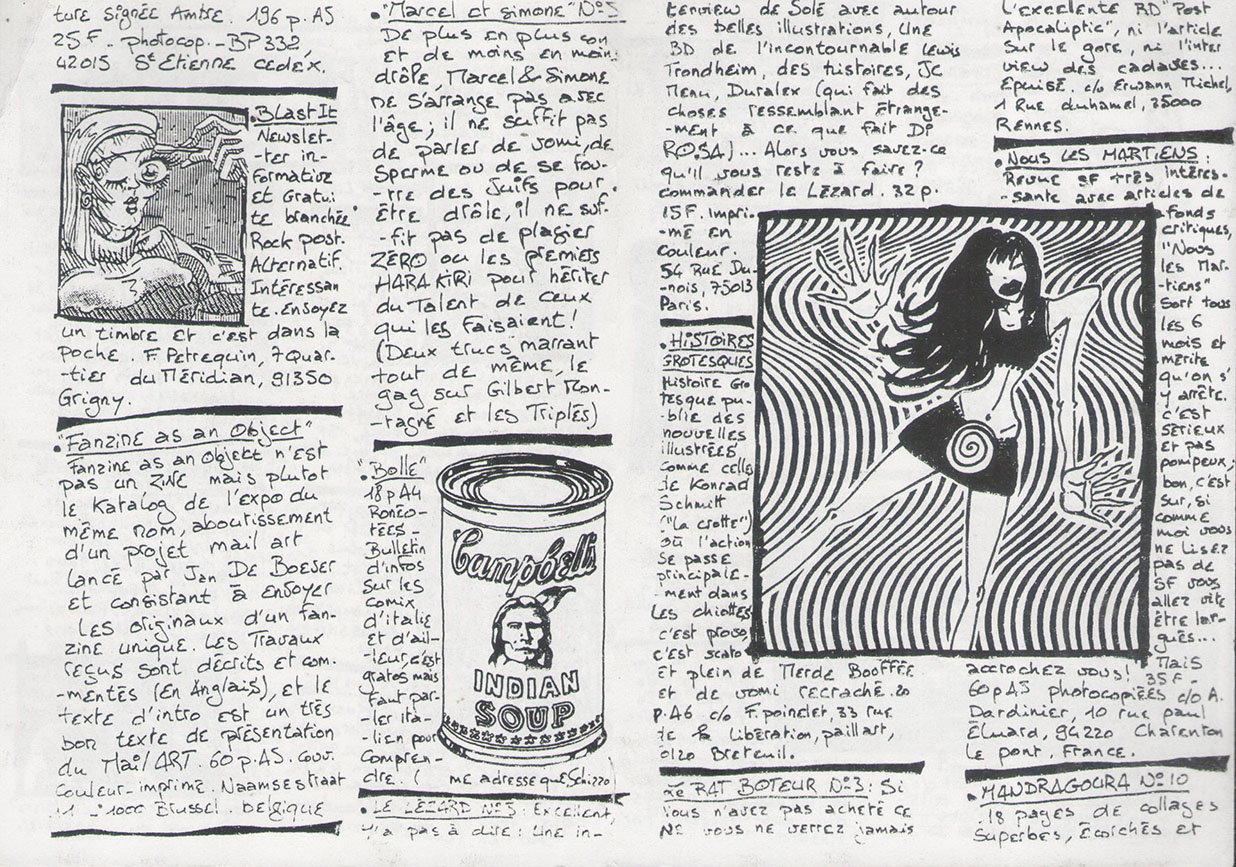 ture signée Ambre. 196 p. A5
25F - photocop. - BP 332,
42015 St Etienne cedex.
• Blast It
Newslet-
-ter in-
formative
et Gratui
te branchée
Rock post.
Alternatif.
Intéressan
te. Envoyez
un timbre et c'est dans la
poche. F. Petrequin, 7 Quar-
-tier du Méridian, 91350
Grigny.
• "Fanzine as an Object"
Fanzine as an Object n'est
pas un zine mais plutot
le Katalog de l'expo du
même nom, aboutissement
d'un projet mail art
lancé par Jan De Boeser
et consistant à envoyer
les originaux d'un fan-
zine unique. Les Travaux
reçus sont décrits et com-
-mentés (En Anglais), et le
texte d'intro est un très
bon texte de présentation
du Mail ART. 60 p. A5. couv.
couleur-imprimé. Naamsestraat
1000 Brussel. belgique
• "Marcel et simone" N°5
De plus en plus con
et de moins en moins
drôle, Marcel & Simone
ne s'arrange pas avec
l'âge; il ne suffit pas
de parler de vomi, de
Sperme ou de se fou-
-tre des Juifs pour
être drôle, il ne suf-
-fit pas de plagier
ZÉRO ou les premiers
HARA KIRI pour hériter
du Talent de ceux
qui les faisaient!
(Deux trucs marrant
tout de même, le
gag sur Gilbert Mon-
-tagné et les Triplés)
• "Bolle"
18 p A4
Ronéo-
tées -
Bulletin
d'infos
sur les
comix
d'italie
et d'ail-
-leur, c'est
gratos mais
faut par-
-ler ita-
-lien pour
compren-
dre. (même adresse que Schizzo
Campbell's
INDIAN
SOUP
• LE LÉZARD N°5 : Excellent,
Y'a pas à dire : Une in-
terview de Solé avec autour
des belles illustrations, Une
BD de l'incontournable Lewis
Trondheim, des histoires, JC
Menu, Duralex (qui fait des
choses ressemblant étrange-
-ment à ce que fait Di
ROSA)... Alors vous savez-ce
qu'il vous reste à faire ?
commander le Lézard. 32 p.
15F. Impri-
-mé en
couleur.
54 Rue Du-
-nois, 75013
Paris.
• HISTOIRES
GROTESQUES
Histoire Gro
tesque pu-
blie des
nouvelles
illustrées
comme celle
de Konrad
Schmitt
("La crotte")
où l'action
se passe
principale-
-ment dans
les chiottes
c'est provo,
c'est scato
et plein de Merde Boofffée
et de vomi recraché. 20
p. A6 c/o F. poindet, 33 rue
de la Libération, paillart,
60120 Breteuil.
• LE RAT BOTEUR N°3 : Si
vous n'avez pas acheté ce
N° vous ne verrez jamais
l'excellente BD "Post
Apocaliptic", ni l'article
sur le gore, ni l'inter
view des cadaves...
Epuisé. c/o Erwann Michel,
1 Rue duhamel, 35000
Rennes.
• NOUS LES MARTIENS :
Revue SF très intéres-
-sante avec articles de
fonds
critiques,
"Nous
les Mar-
-tiens"
sort tous
les 6
mois et
mérite
qu'on s'
y arrête.
c'est
sérieux
et pas
pompeux;
bon, c'est
sur, si
comme
moi vous
ne lisez
pas de
SF vous
allez vite
être lar-
-gués...
Mais
accrochez vous! 35F -
60 p A5 photocopiées c/o A.
Dardinier, 10 rue paul
Éluard, 94220 Charenton
le pont, France.
• MANDRAGOURA N°10
.18 pages de collages
superbes, écorchés et